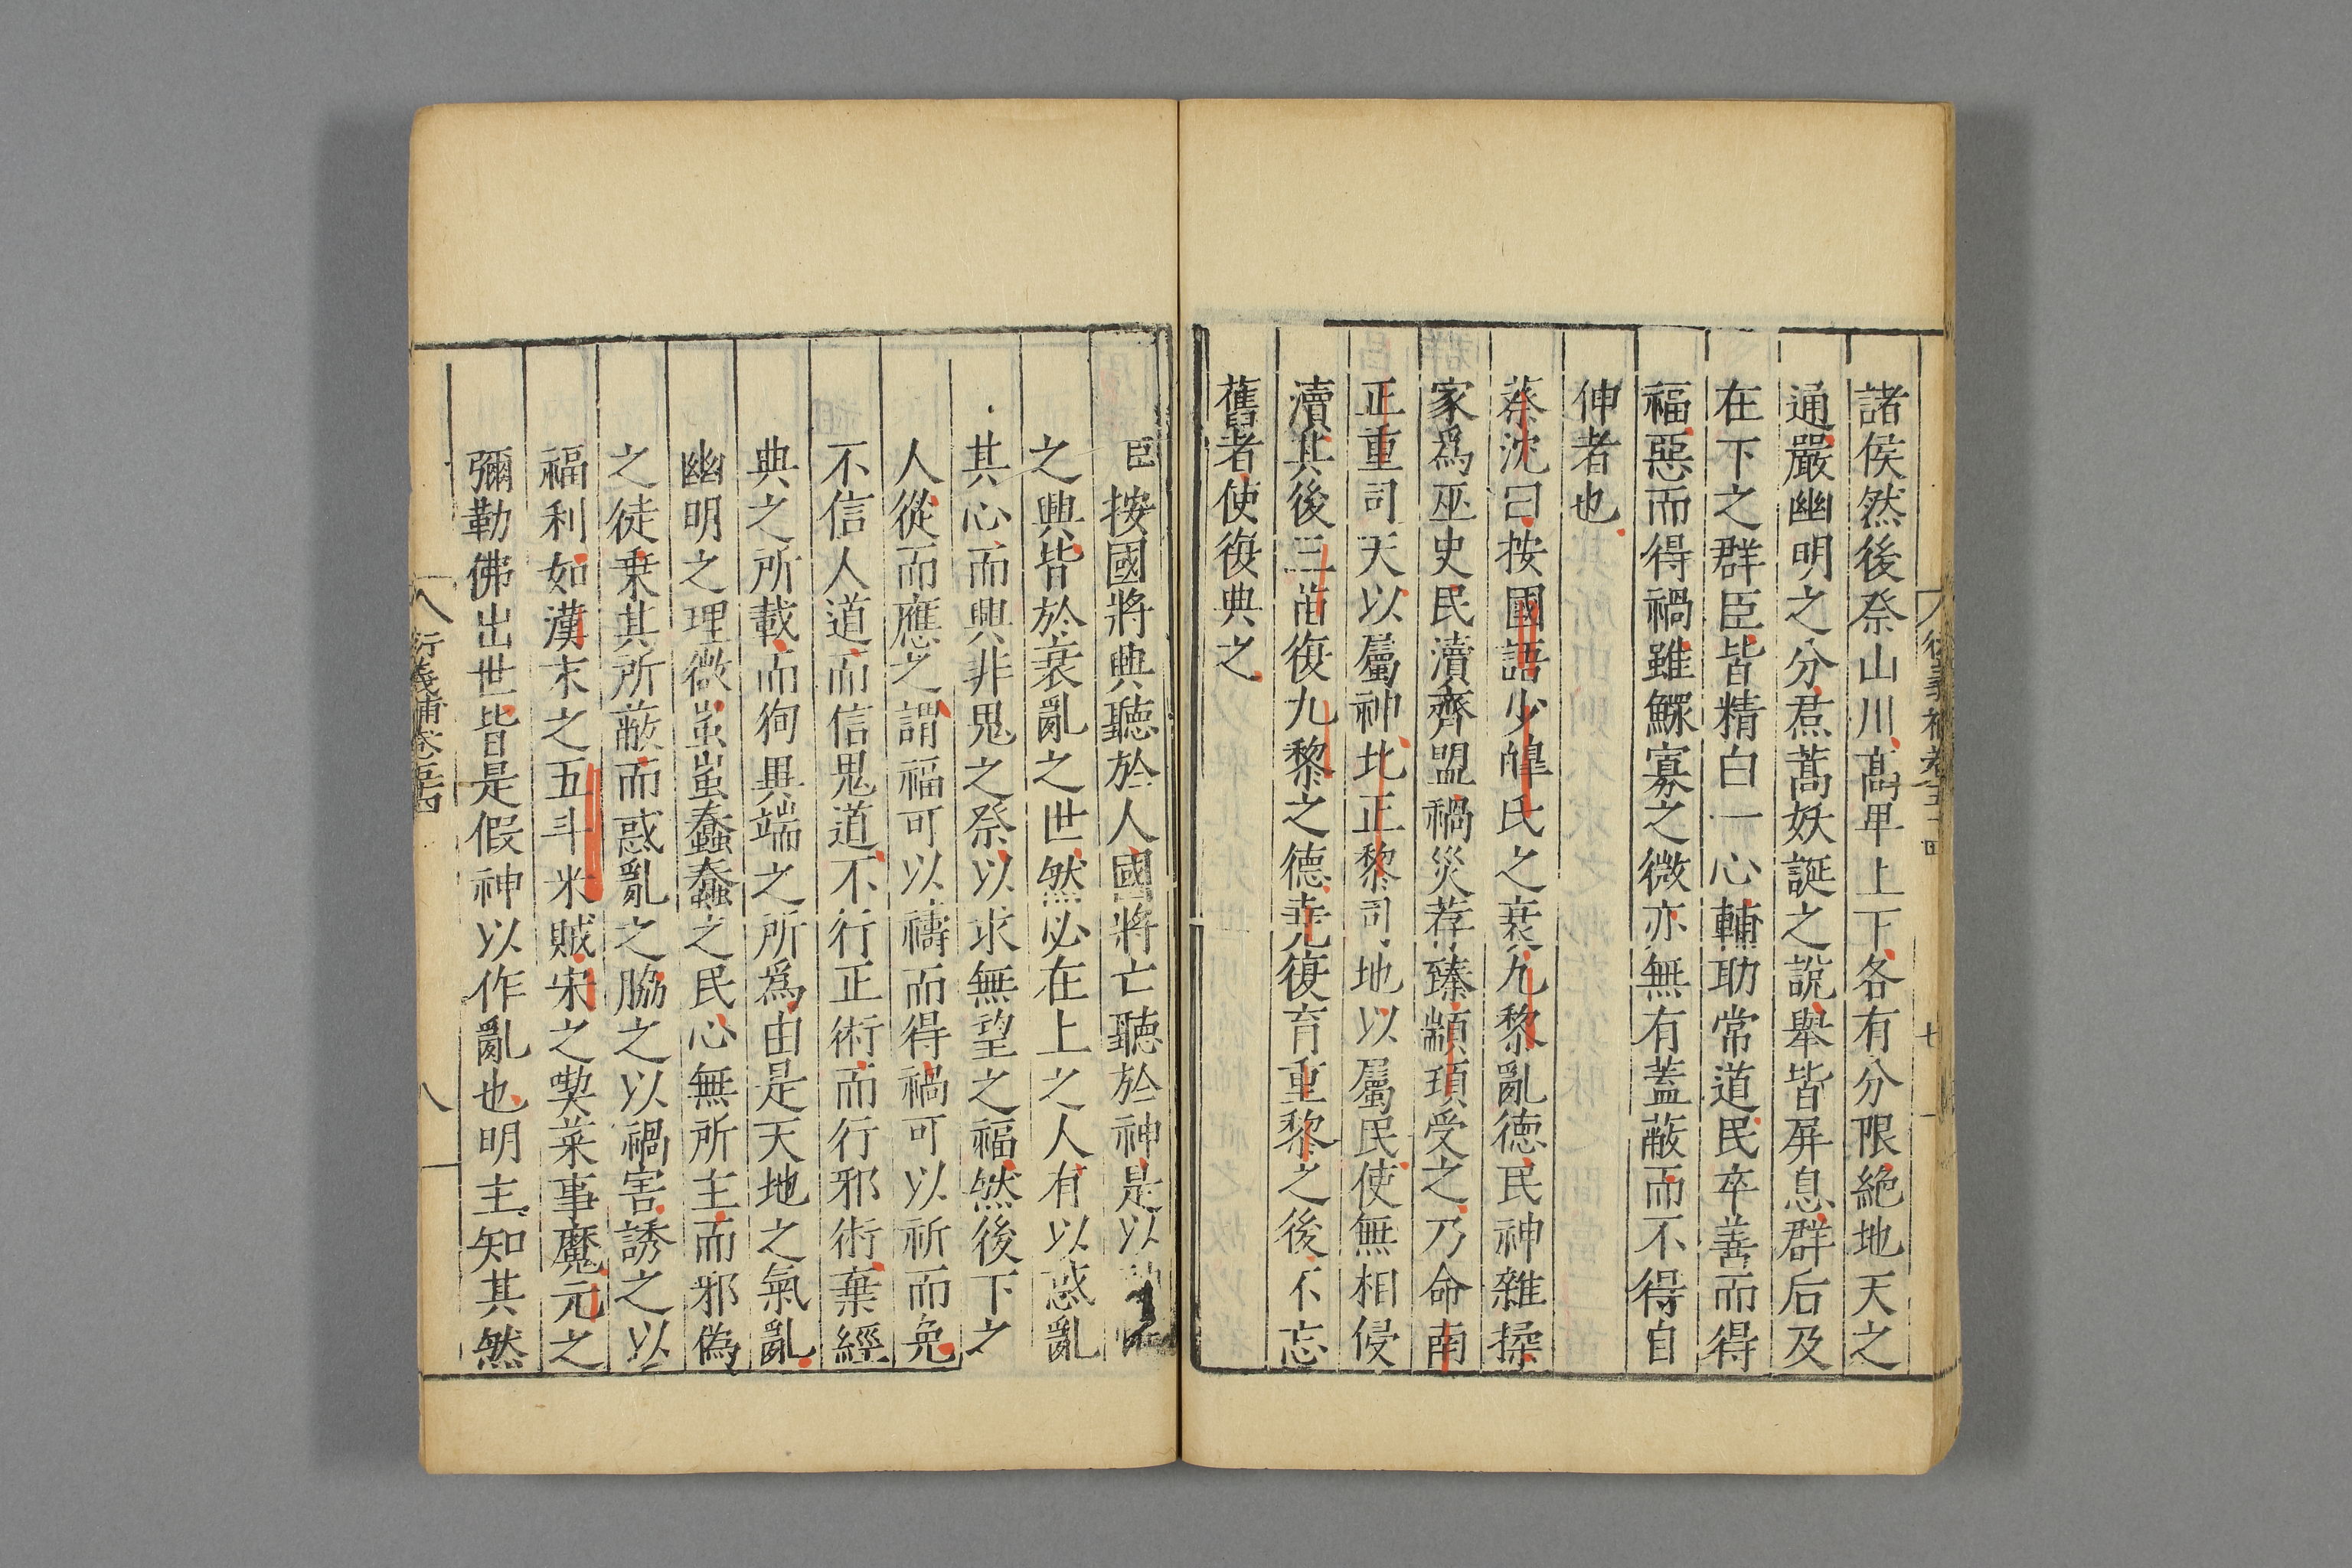 諸侯然後祭山川高卑上下各有分限絶地天之
通嚴幽明之分焄蒿妖誕之說舉皆屏息群后及
在下之群臣皆精白一心輔助常道民卒善而得
福惡而得禍雖鰥寡之微亦無有蓋蔽而不得自
伸者也
蔡沈曰按國語少皥氏之衰九黎亂德民神雜揉
家爲巫史民瀆齊盟禍災荐臻顓頊受之乃命南
正重司天以屬神北正黎司地以屬民使無相侵
瀆其後三苗復九黎之德堯復育重黎之後不忘
舊者使復典之
臣按國將興聽於人國將亡聽於神是以
之興皆於衰亂之世然必在上之人有以惑亂
其心而興非鬼之祭以求無望之福然後下之
人從而應之謂福可以禱而得禍可以祈而免
不信人道而信鬼道不行正術而行邪術棄經
典之所載而狥異端之所爲由是天地之氣亂
幽明之理微蚩蚩蠢蠢之民心無所主而邪偽
之徒乗其所蔽而惑亂之脇之以禍害誘之以
福利如漢末之五斗米賊宋之喫菜事魔元之
彌勒佛出世皆是假神以作亂也明主知其然
衍義補卷五十四
八